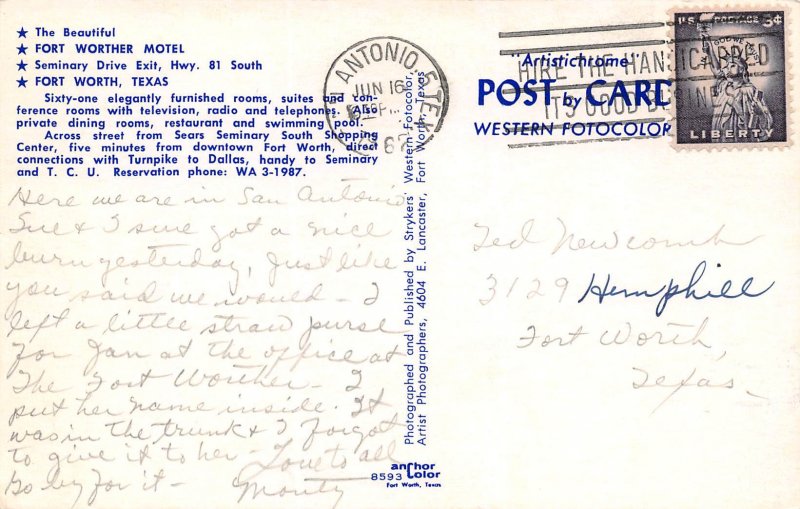 ★ The Beautiful
★ FORT WORTHER MOTEL
★ Seminary Drive Exit, Hwy. 81 South
★ FORT WORTH, TEXAS
Sixty-one elegantly furnished rooms, suites and con-
ference rooms with television, radio and telephones. Also
private dining rooms, restaurant and swimming pool.
Across street from Sears Seminary South Shopping
Center, five minutes from downtown Fort Worth, direct
connections with Turnpike to Dallas, handy to Seminary
and T. C. U. Reservation phone: WA 3-1987.
Here we are in San Antonio
Sue & I sure got a nice
burn yesterday, just like
you said we would - I
left a little straw purse
for Jan at the office at
The Fort Worther - I
put her name inside. It
was in the trunk & I forgot
to give it to her - Love to all
Go by for it - Monty
Photographed and Published by Strykers Western Fotocolor,
Artist Photographers, 4604 E. Lancaster, Fort Worth, Texas
anchor
8593 Color
Fort Worth, Texas
SAN ANTONIO TEX
JUN 16
PM
HIRE THE HANDICAPPED
IT'S GOOD BUSINESS
"Artistichrome"
POST by CARD
WESTERN FOTOCOLOR
U.S. POSTAGE 3¢
LIBERTY
Ted Newcomb
3129 Hemphill
Fort Worth,
Texas